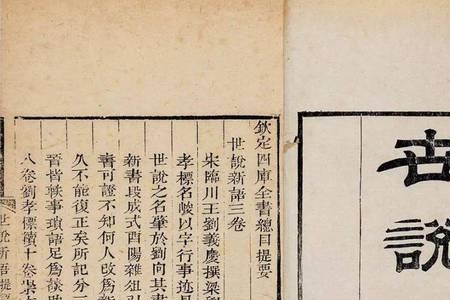 世說
欽定四庫全書總目提要
世說新語三卷
宋臨川王劉義慶撰梁
孝標名峻以字行事迹
世說之名肇於劉向其書
新書段成式酉陽雜俎引
書可證不知何人改爲
久不能復正矣所記分
晉皆軼事瑣語足爲談助
八卷劉孝標續十卷
世說新語提